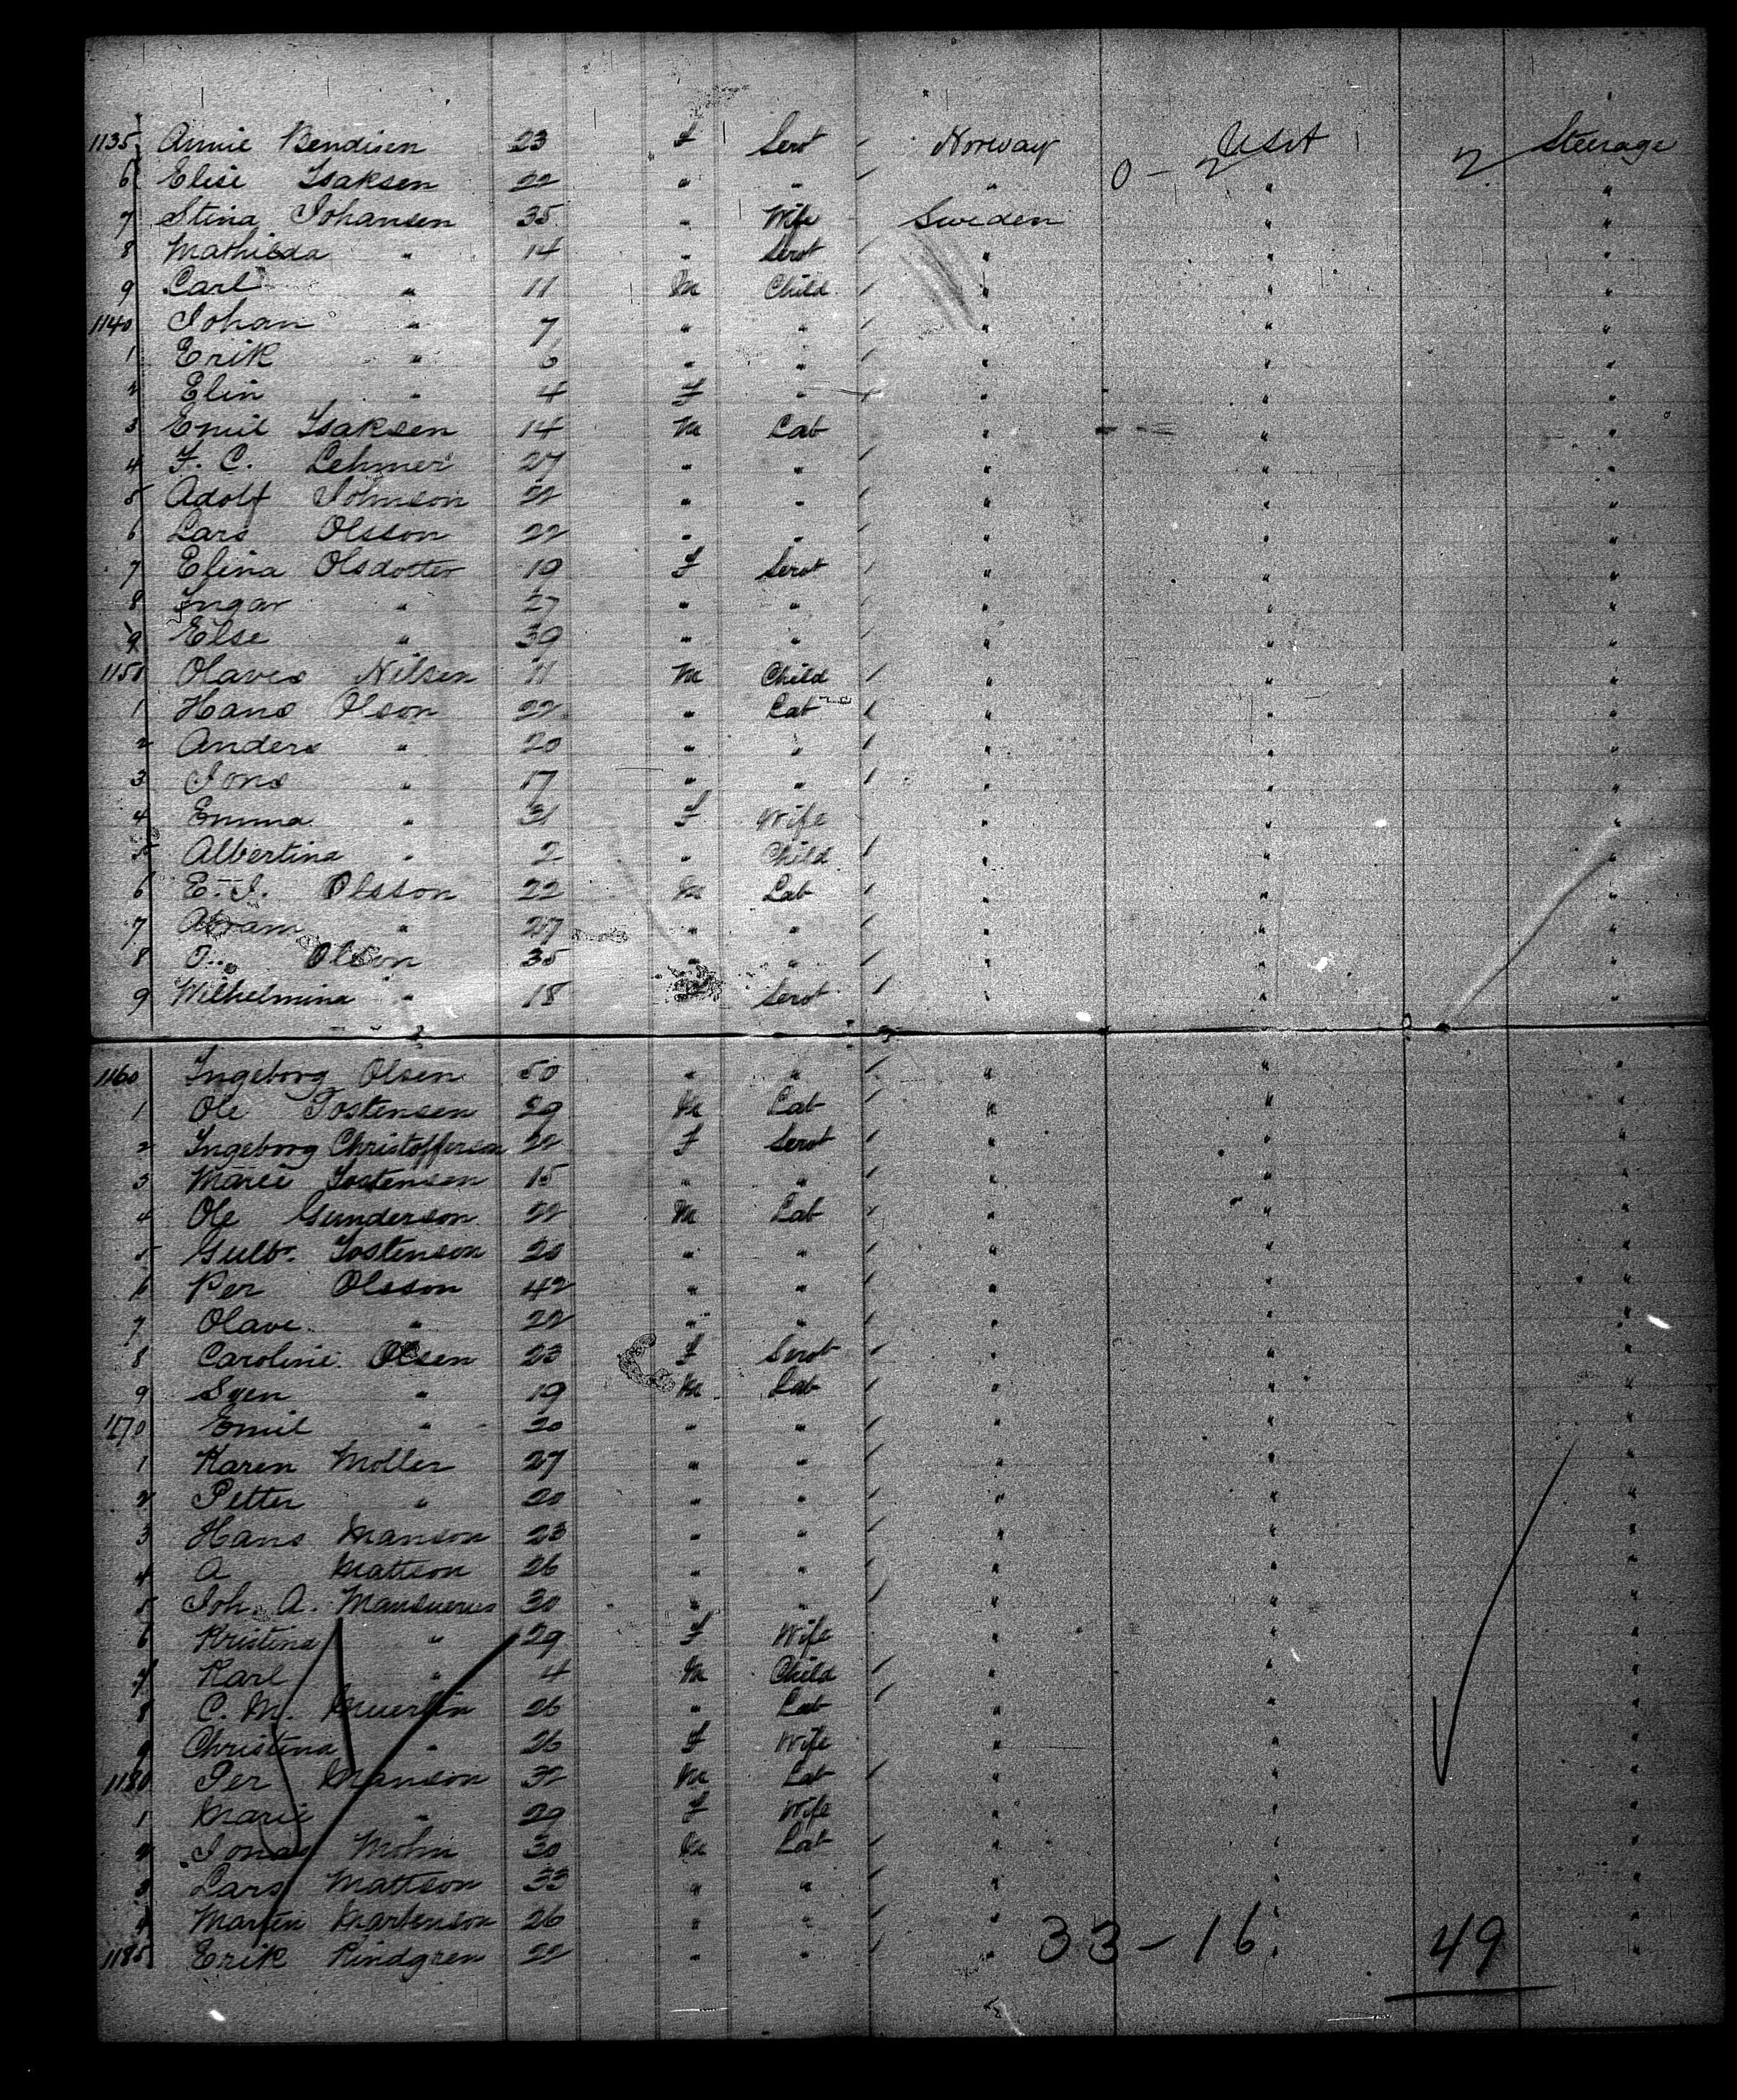 1135 Annie Bendisen 23 F Servt Norway USA Steerage
6 Elise Isaksen 22 " " " 0 - 2 " 2 "
7 Stina Johansen 35 " Wife Sweden " "
8 Mathilda " 14 " Servt " " "
9 Carl " 11 M Child " " "
1140 Johan " 7 " " " " "
1 Erik " 6 " " " " "
2 Elin " 4 F " " " "
3 Emil Isaksen 14 M Lab " " "
4 F. C. Lehmer 27 " " " " "
5 Adolf Johnson 22 " " " " "
6 Lars Olsson 22 " " " " "
7 Elina Olsdotter 19 F Servt " " "
8 Ingar " 27 " " " " "
9 Else " 39 " " " " "
1150 Olaves Nilsen 11 M Child " " "
1 Hans Olson 22 " Lab " " "
2 Anders " 20 " " " " "
3 Jons " 17 " " " " "
4 Emma " 31 F Wife " " "
5 Albertina " 2 " Child " " "
6 E. J. Olsson 22 M Lab " " "
7 Abram " 27 " " " " "
8 O. Olson 35 " " " " "
9 Wilhelmina " 18 Servt " " "
1160 Ingeborg Olsen 50 " " " " "
1 Ole Tostensen 29 M Lab " " "
2 Ingeborg Christofferson 22 F Servt " " "
3 Marie Tostensen 15 " " " " "
4 Ole Gunderson 22 M Lab " " "
5 Gulbr. Tostenson 20 " " " " "
6 Per Olsson 42 " " " " "
7 Olave " 22 " " " " "
8 Caroline Olsen 23 F Servt " " "
9 Sven " 19 M Lab " " "
1170 Emil " 20 " " " " "
1 Karen Moller 27 " " " " "
2 Petter " 20 " " " " "
3 Hans Manson 23 " " " " "
4 A Mattson 26 " " " " "
5 Joh. A. 30 " " " " "
6 Kristina " 29 F Wife " " "
7 Karl " 4 M Child " " "
8 C. M. 26 " Lab " " "
9 Christina " 26 F Wife " " "
1180 Per Manson 32 M Lab " " "
1 Marie " 29 F Wife " " "
2 Jonas Molin 30 M Lab " " "
3 Lars Mattson 33 " " " " "
4 Marten Martenson 26 " " " " "
1185 Erik Lindgren 22 " " " 33 - 16 " 49 "